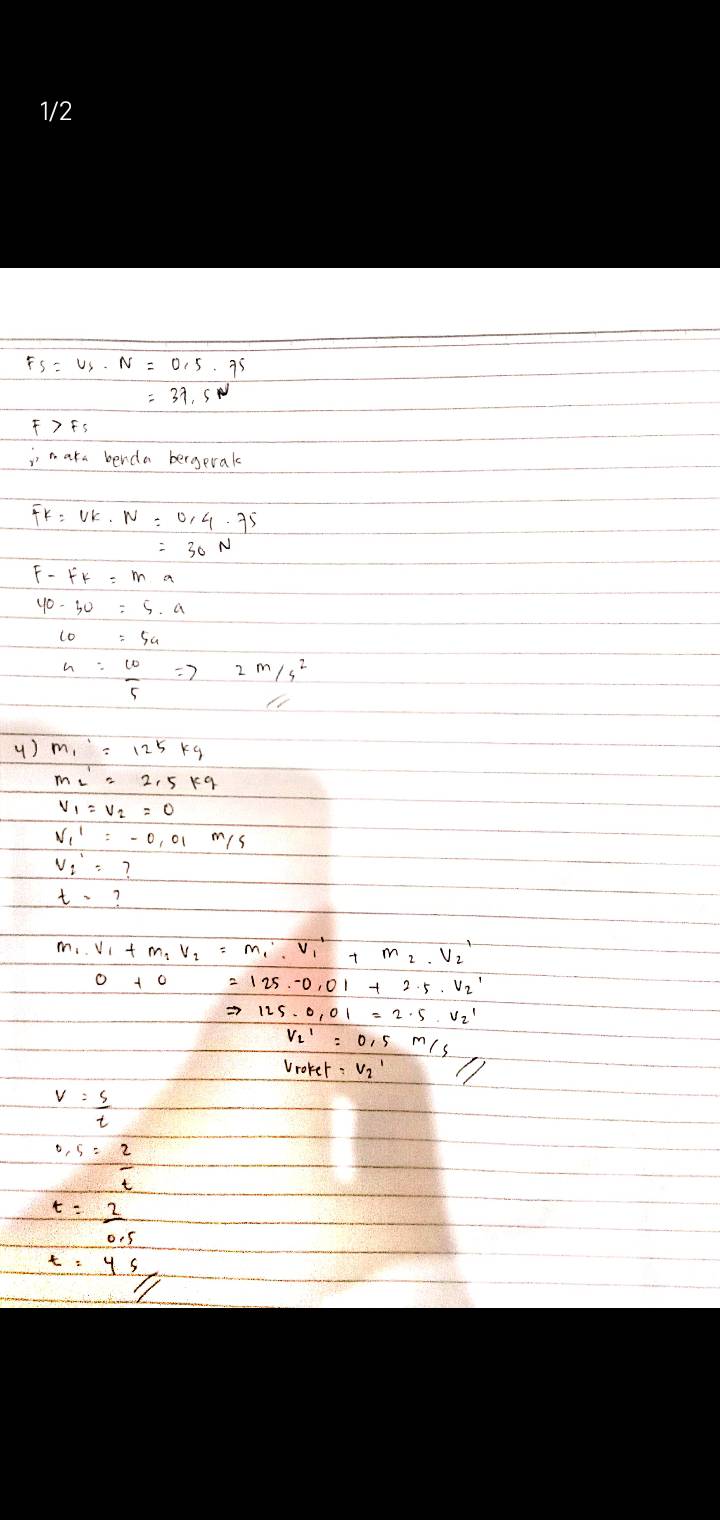 1/2
Fs = Us . N = 0,5 . 75
= 37,5 N
F > Fs
;, maka benda bergerak
Fk = Uk . N = 0,4 . 75
= 30 N
F - Fk = m a
40 - 30 = 5 . a
10 = 5a
a = 10/5 => 2 m/s²
4) m₁' = 125 kg
m₂' = 2,5 kg
V₁ = V₂ = 0
V₁' = -0,01 m/s
V₂' = ?
t = ?
m₁ . V₁ + m₂ V₂ = m₁' . V₁' + m₂ . V₂'
0 + 0 = 125 . -0,01 + 2.5 . V₂'
=> 125 . 0,01 = 2.5 . V₂'
V₂' = 0,5 m/s
Vroket = V₂'
V = s/t
0,5 = 2/t
t = 2/0,5
t = 4 s